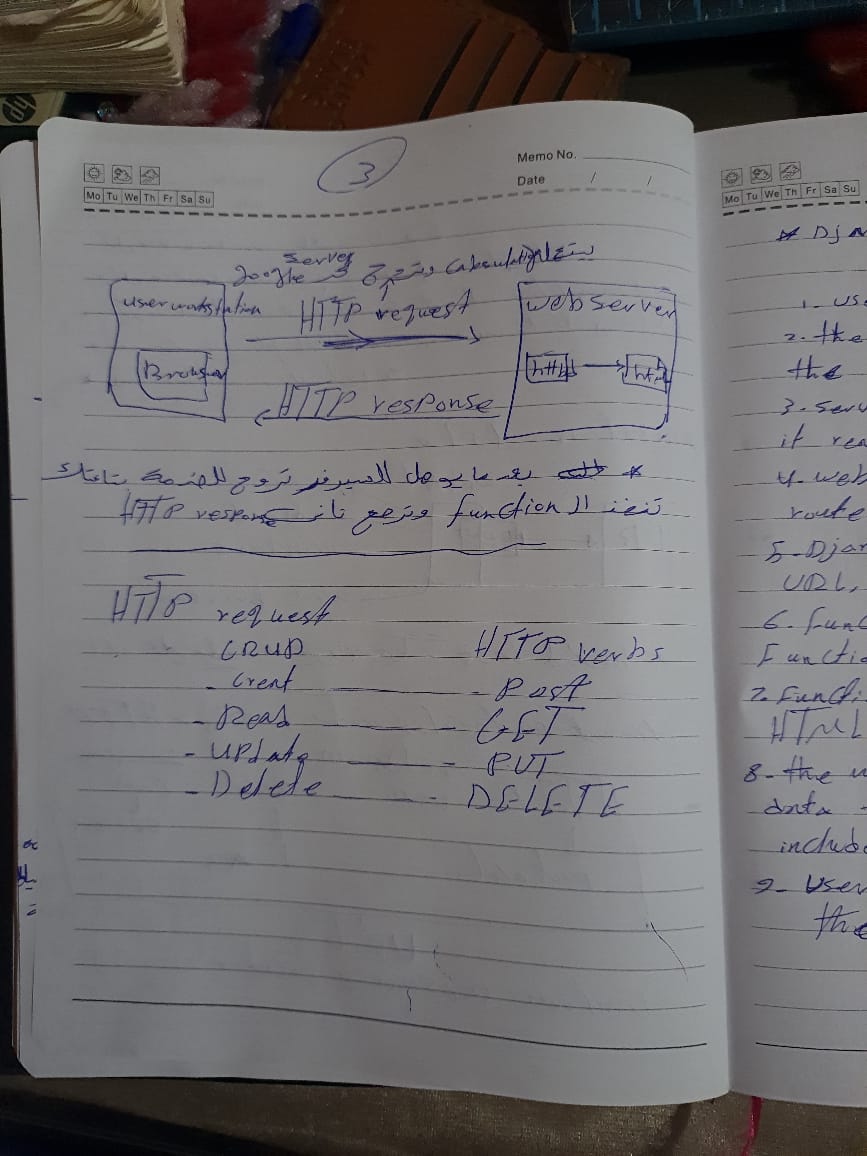 3
Memo No.
Date / /
Mo Tu We Th Fr Sa Su
server
google
HTTP request
user workstation
Browser
web server
http
HTTP response
* بعد ما يوصل للسيرفر تروح للخدمة بتاعتك
تنفذ ال function وترجع تاني HTTP response
HTTP request
CRUD HTTP verbs
- Creat - Post
- Read - GET
- update - PUT
- Delete - DELETE
Mo Tu We Th Fr Sa Su
1. us
2. the
the
3. serv
it rea
4. web
route
5-Djan
URL,
6. Func
Functio
7. Functi
HTML
8- the u
data
include
9- User
the
hp